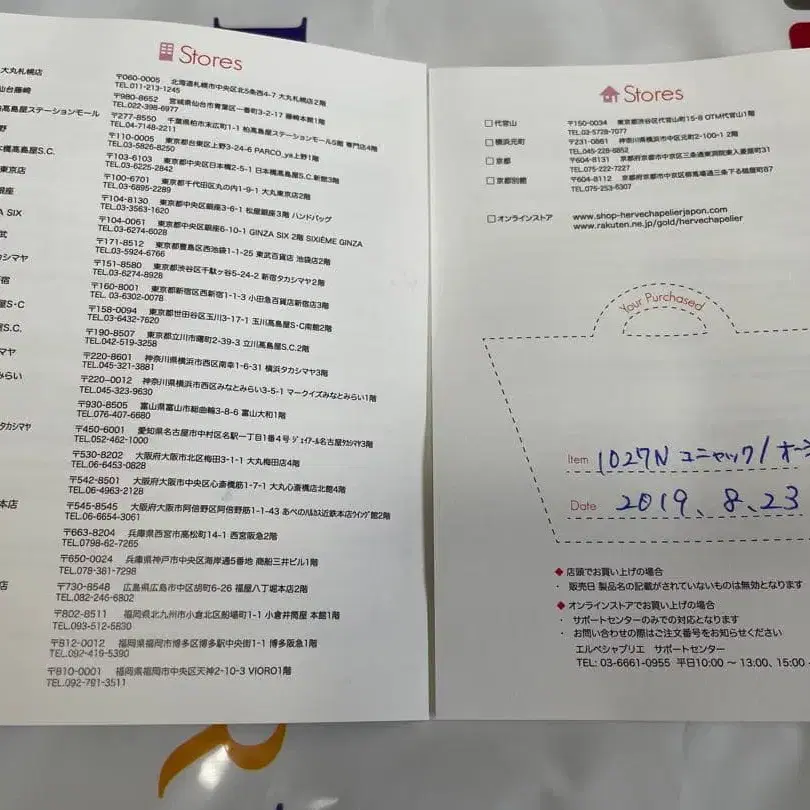 Stores
大丸札幌店
〒060-0005 北海道札幌市中央区北5条西4-7 大丸札幌店2階
TEL.011-213-1245
仙台藤崎
〒980-8652 宮城県仙台市青葉区一番町3-2-17 藤崎本館1階
TEL.022-398-6977
柏髙島屋ステーションモール
〒277-8550 千葉県柏市末広町1-1 柏髙島屋ステーションモールS館 専門店4階
TEL.04-7148-2211
野
〒110-0005 東京都台東区上野3-24-6 PARCO_ya上野1階
TEL.03-5826-8250
本橋髙島屋S.C.
〒103-6103 東京都中央区日本橋2-5-1 日本橋髙島屋S.C.新館3階
TEL.03-6225-2842
東京店
〒100-6701 東京都千代田区丸の内1-9-1 大丸東京店2階
TEL.03-6895-2289
銀座
〒104-8130 東京都中央区銀座3-6-1 松屋銀座3階 ハンドバッグ
TEL.03-3563-1620
A SIX
〒104-0061 東京都中央区銀座6-10-1 GINZA SIX 2階 SIXIÈME GINZA
TEL.03-6274-6028
武
〒171-8512 東京都豊島区西池袋1-1-25 東武百貨店 池袋店2階
TEL.03-5924-6766
タカシマヤ
〒151-8580 東京都渋谷区千駄ヶ谷5-24-2 新宿タカシマヤ2階
TEL.03-6274-8928
宿
〒160-8001 東京都新宿区西新宿1-1-3 小田急百貨店新宿店3階
TEL. 03-6302-0078
屋S・C
〒158-0094 東京都世田谷区玉川3-17-1 玉川髙島屋S・C南館2階
TEL.03-6432-7620
屋S.C.
〒190-8507 東京都立川市曙町2-39-3 立川髙島屋S.C.2階
TEL.042-519-3258
マヤ
〒220-8601 神奈川県横浜市西区南幸1-6-31 横浜タカシマヤ3階
TEL.045-321-3881
みらい
〒220-0012 神奈川県横浜市西区みなとみらい3-5-1 マークイズみなとみらい1階
TEL.045-323-9630
〒930-8505 富山県富山市総曲輪3-8-6 富山大和1階
TEL.076-407-6680
タカシマヤ
〒450-6001 愛知県名古屋市中村区名駅一丁目1番4号 ジェイアール名古屋タカシマヤ3階
TEL.052-462-1000
〒530-8202 大阪府大阪市北区梅田3-1-1 大丸梅田店4階
TEL.06-6453-0828
〒542-8501 大阪府大阪市中央区心斎橋筋1-7-1 大丸心斎橋店北館4階
TEL.06-4963-2128
本店
〒545-8545 大阪府大阪市阿倍野区阿倍野筋1-1-43 あべのハルカス近鉄本店ウイング館2階
TEL.06-6654-3061
〒663-8204 兵庫県西宮市高松町14-1 西宮阪急2階
TEL.0798-62-7265
〒650-0024 兵庫県神戸市中央区海岸通5番地 商船三井ビル1階
TEL.078-381-7298
店
〒730-8548 広島県広島市中区胡町6-26 福屋八丁堀本店2階
TEL.082-246-6802
〒802-8511 福岡県北九州市小倉北区船場町1-1 小倉井筒屋 本館1階
TEL.093-512-5830
〒812-0012 福岡県福岡市博多区博多駅中央街1-1 博多阪急1階
TEL.092-419-5390
〒810-0001 福岡県福岡市中央区天神2-10-3 VIORO1階
TEL.092-791-3511
Stores
代官山
〒150-0034 東京都渋谷区代官山町15-8 OTM代官山1階
TEL.03-5728-7077
横浜元町
〒231-0861 神奈川県横浜市中区元町2-100-1 2階
TEL.045-228-8852
京都
〒604-8131 京都府京都市中京区三条通東洞院東入菱屋町31
TEL.075-222-7227
京都別館
〒604-8112 京都府京都市中京区柳馬場通三条下る槌屋町87
TEL.075-253-6307
オンラインストア
www.shop-hervechapelierjapon.com
www.rakuten.ne.jp/gold/hervechapelier
Your Purchased
Item 1027N コニャック/オー
Date 2019.8.23
◆ 店頭でお買い上げの場合
・ 販売日 製品名の記載がされていないものは無効となります
◆ オンラインストアでお買い上げの場合
・ サポートセンターのみでの対応となります
・ お問い合わせの際はご注文番号をお知らせください
エルベシャプリエ サポートセンター
TEL: 03-6661-0955 平日10:00 ～ 13:00、15:00